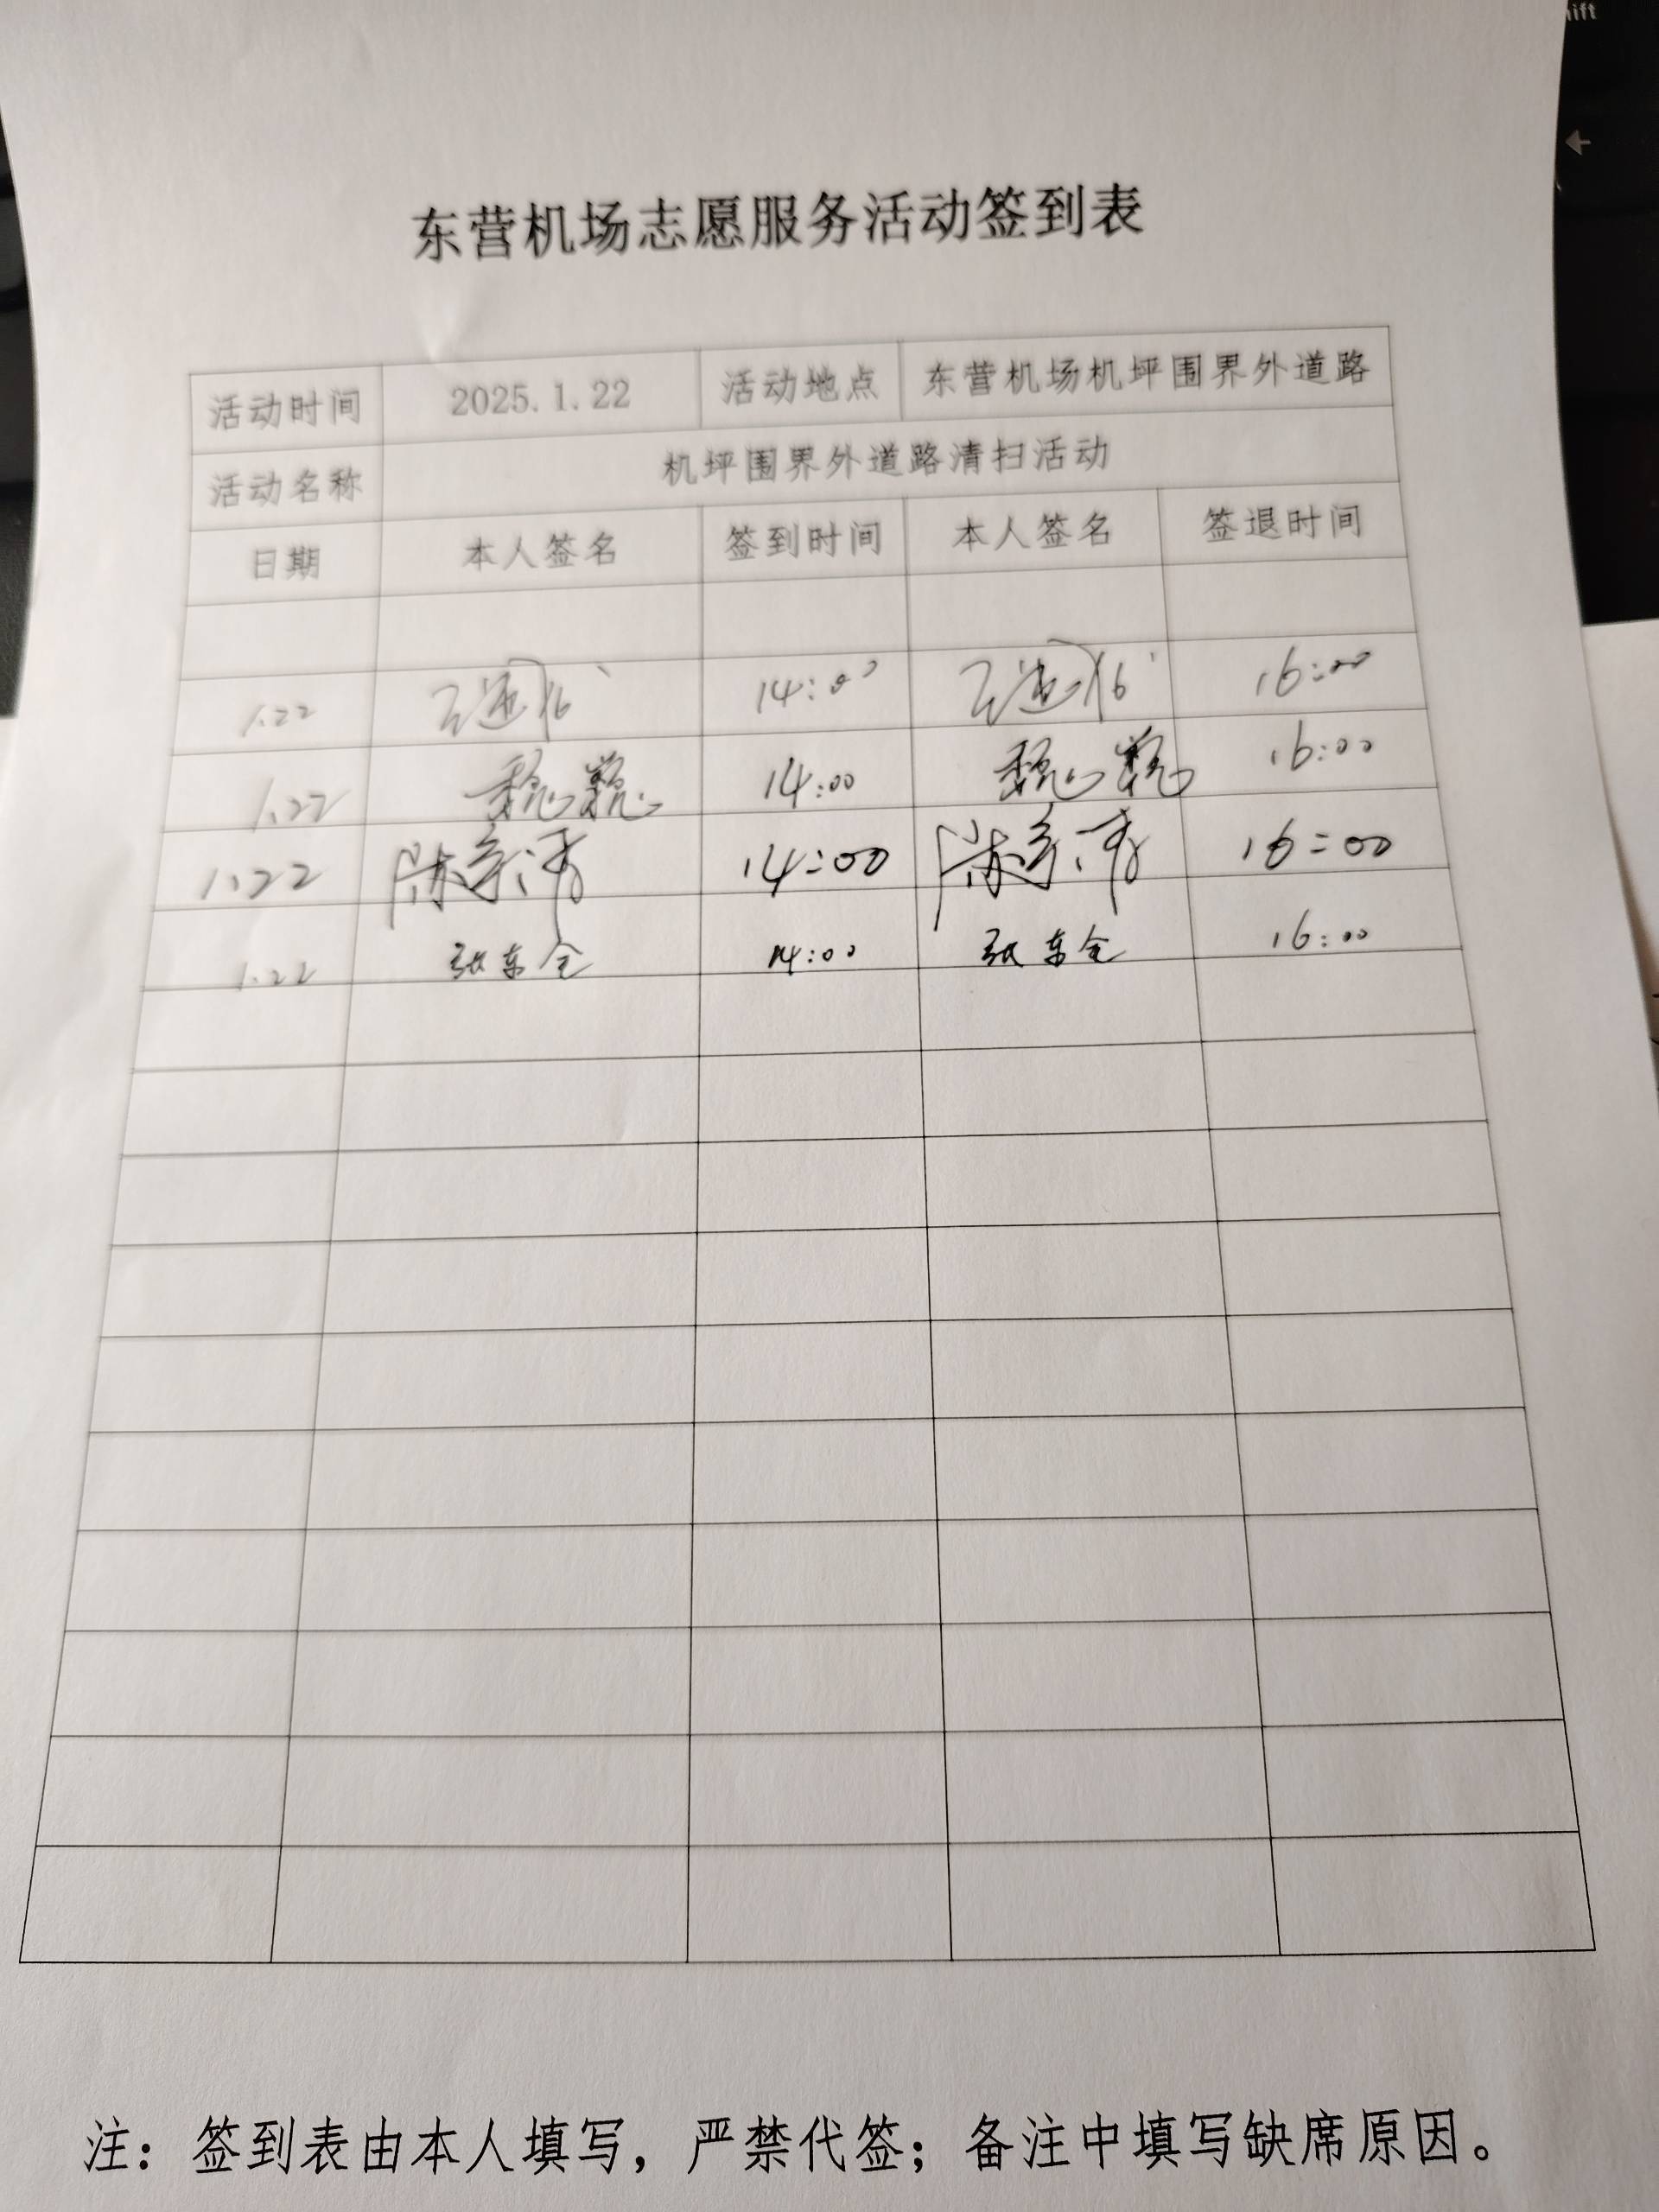 ift
←
东营机场志愿服务活动签到表
活动时间 2025.1.22 活动地点 东营机场机坪围界外道路
活动名称 机坪围界外道路清扫活动
日期 本人签名 签到时间 本人签名 签退时间
1.22 14:00 16:00
1.22 魏巍 14:00 魏巍 16:00
1.22 14:00 16:00
1.22 张东全 14:00 张东全 16:00
注：签到表由本人填写，严禁代签；备注中填写缺席原因。